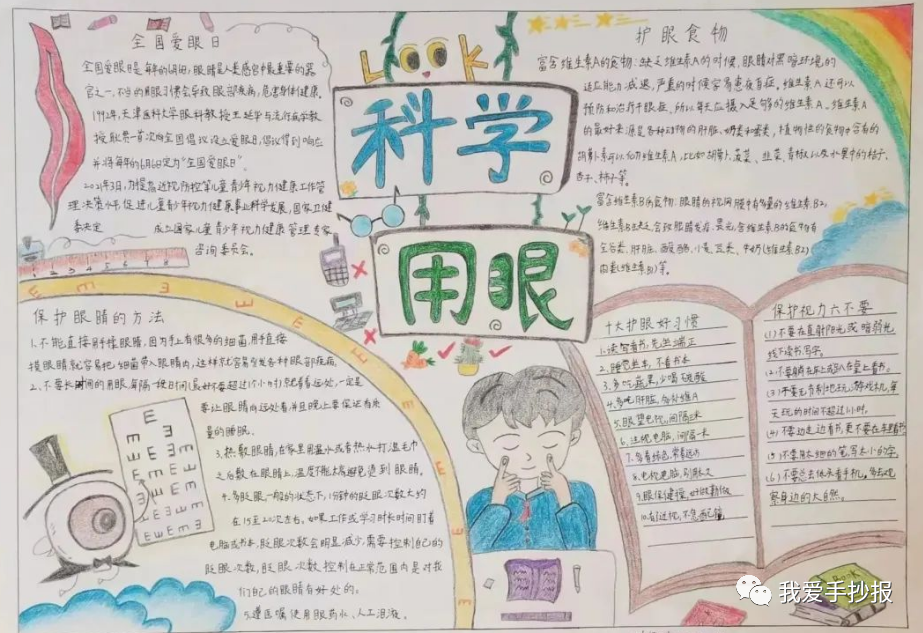 全国爱眼日
全国爱眼日是每年的6月6日,眼睛是人类感官中最重要的器
官之一,不良用眼习惯会导致眼部疾病,危害身体健康。
1992年,天津医科大学眼科教授王延华与流行病学教
授耿贯一首次向全国倡议设立爱眼日,倡议得到响应
并将每年的6月6日定为“全国爱眼日”
2021年3月,为提高近视防控等儿童青少年视力健康工作管
理决策水平,促进儿童青少年视力健康事业科学发展,国家卫健
委决定
成立国家儿童青少年视力健康管理专家
咨询委员会。
LOOK
科学
用眼
护眼食物
富含维生素A的食物:缺乏维生素A的时候,眼睛对黑暗环境的
适应能力减退,严重的时候容易患夜盲症。维生素A还可以
预防和治疗干眼症,所以每天应摄入足够的维生素A。维生素A
的最好来源是各种动物的肝脏、奶类和蛋类,植物性的食物中含有的
胡萝卜素可以
维生素A,比如胡萝卜、菠菜、韭菜、青椒以及水果中的桔子、
杏子、柿子等。
富含维生素B的食物:眼睛的视网膜中有
的维生素B2,
维生素B
含维生素B2的
肝脏、酸奶、小麦、豆类、牛奶(维生素B2)
(维生素B1)等。
保护眼睛的方法
1.不能直接用手揉眼睛,因为手上有很多的细菌,用手直接
揉眼睛就容易把细菌带入眼睛内,这样就容易引发各种眼部疾病
2.不要长时间的用眼,每隔一段时间(最好不要超过1个小时)就看看远处,一定是
要让眼睛向远处看,并且晚上要保证有质
量的睡眠。
3.热敷眼睛,在家里用温水或者热水打湿毛巾
之后敷在眼睛上,温度不能太高避免烫到眼睛。
4.多眨眼一般的状态下,1分钟的眨眼次数大约
在15至20次左右。如果工作或学习时长时间盯着
电脑或书本,眨眼次数会明显减少,需要控制自己的
眨眼次数,眨眼次数控制在正常范围内是对我
们自己的眼睛有好处的。
5.遵医嘱使用眼药水、人工泪液。
十大护眼好习惯
1.读写看书,先坐端正
3.多吃蔬果,少喝碳酸
4.多吃肝脏,
维A
5.眼望电视,间隔三米
6.注视电脑,间隔一米
7.多看绿色,常看远方
9.眼保健操,
保护视力六不要
(1)不要在直射阳光或暗弱光
线下读书写字。
(2)不要躺在床上或趴在桌上看书。
天玩的时间不超过1小时。
(4)不要边走边看书,更不要在车里看书
(5)不要用太细的笔写太小的字。
(6)不要总
看手机,
察身边的大自然。
我爱手抄报